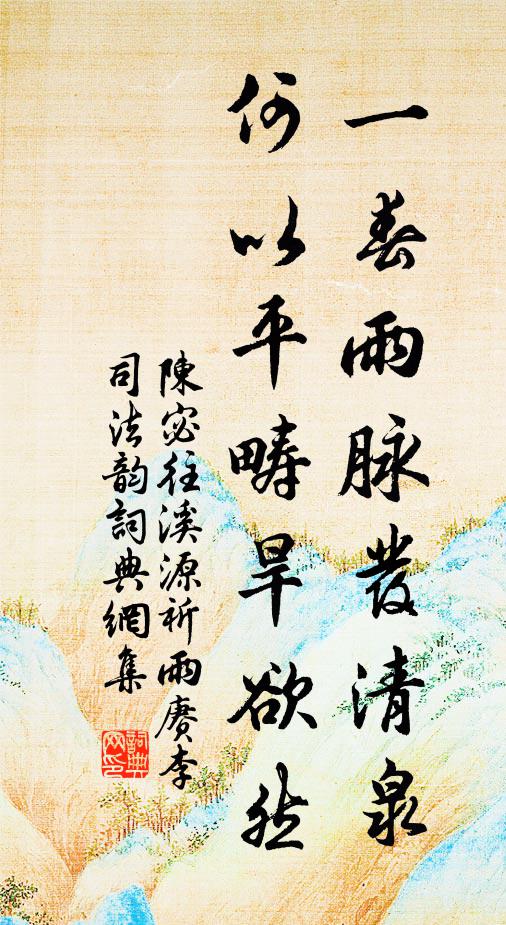 一春雨脉發清泉
何以平疇旱欲然
陳宓往溪源祈雨賡李
司法韵詞典網集
詞典
网印